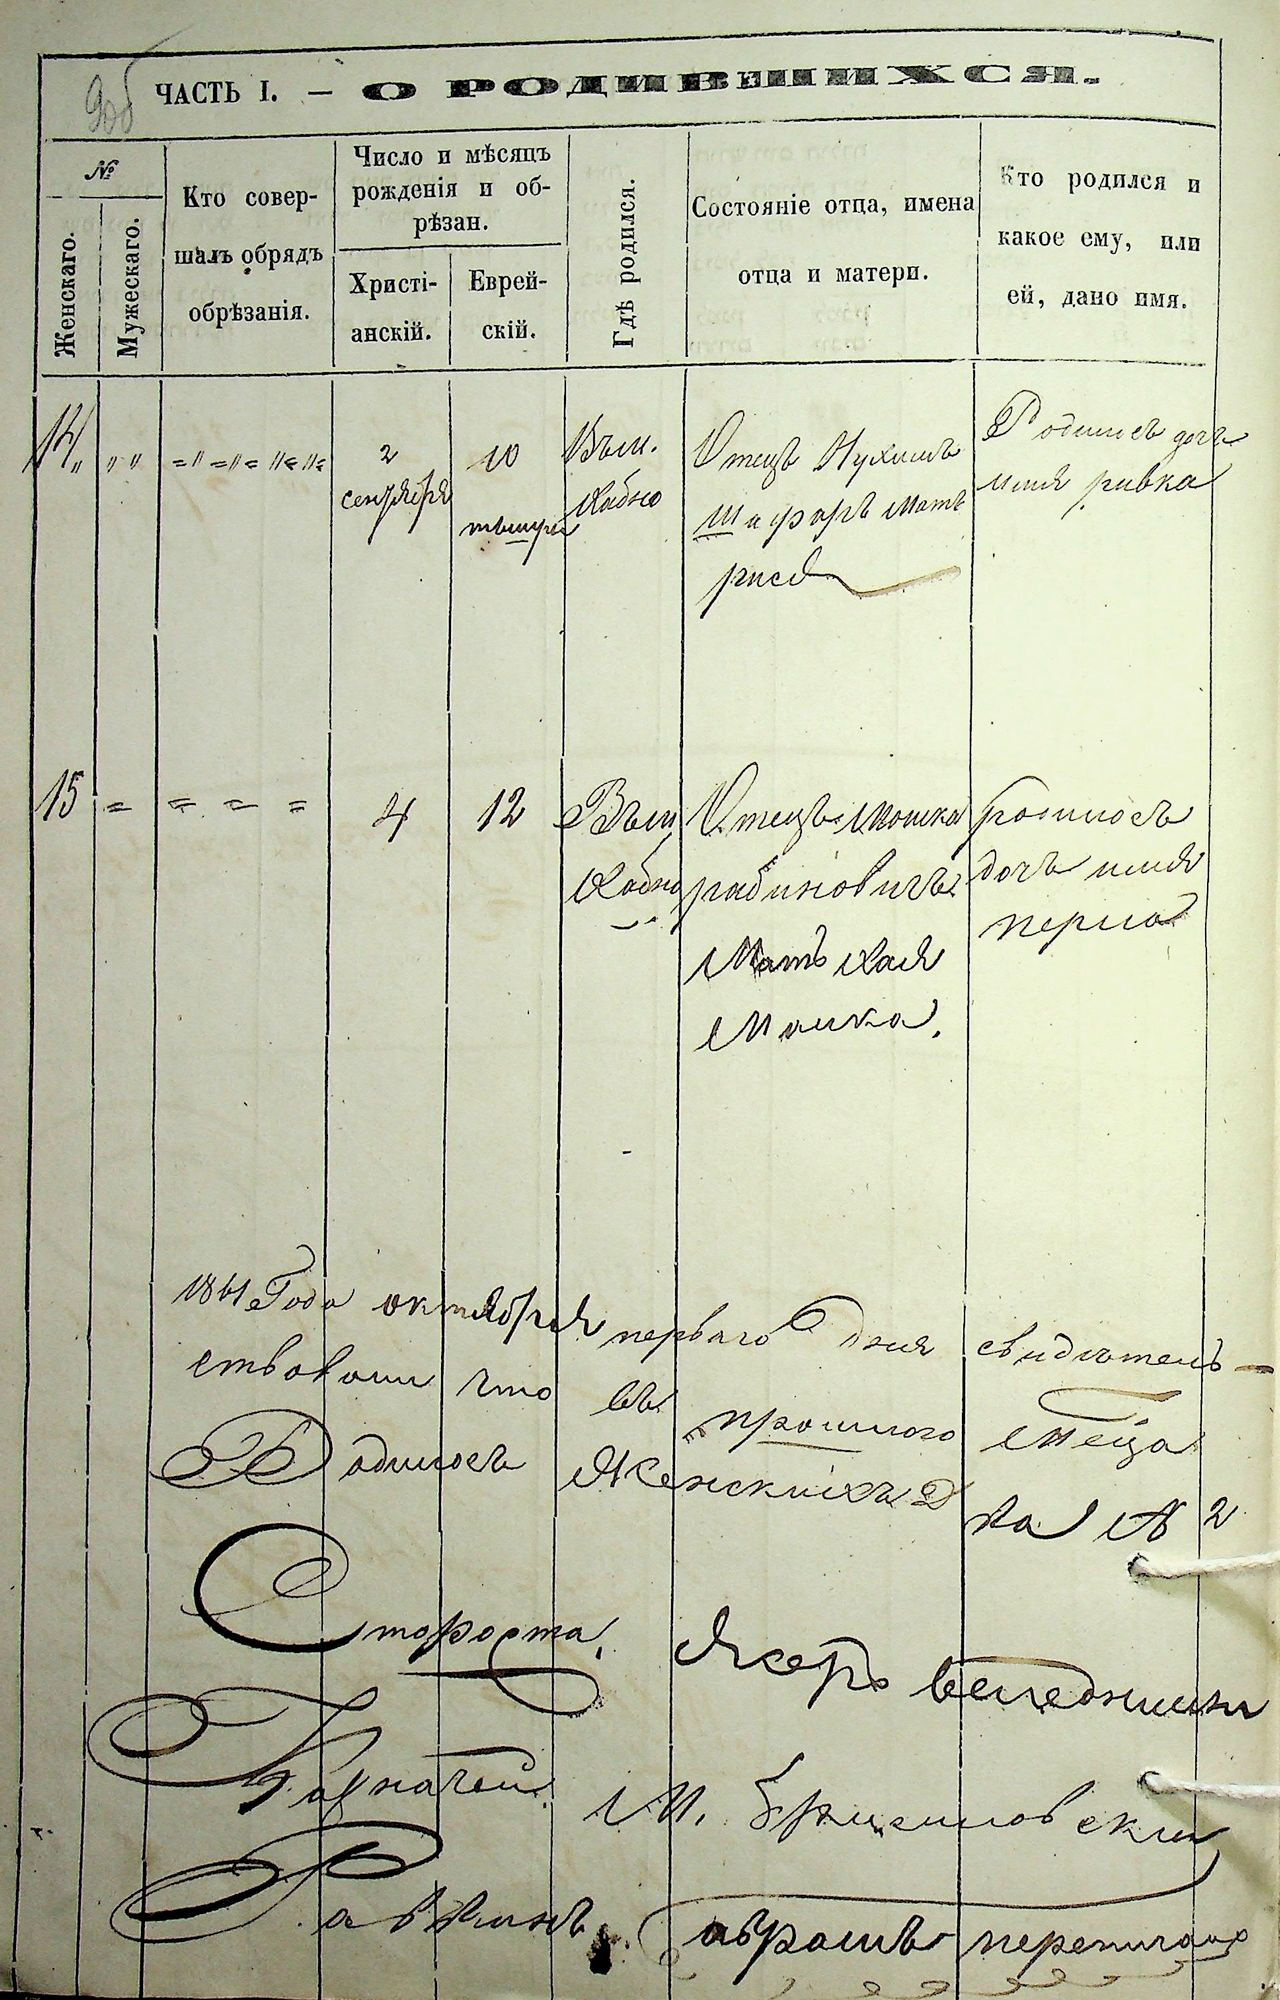 ЧАСТЬ I. — О РОДИВШИХСЯ.
№
Женскаго.
Мужескаго.
Кто совер-
шалъ обрядъ
обрѣзанія.
Число и мѣсяцъ
рожденія и об-
рѣзан.
Христі-
анскій.
Еврей-
скій.
Гдѣ родился.
Состояніе отца, имена
отца и матери.
Кто родился и
какое ему, или
ей, дано имя.
14
2
сентября
10
тышре
Въ м.
Кобно
Отецъ Нухимъ
Шафаръ мать
рися
Родилось дочъ
имя ривка
15
4
12
Въ м
Кобно
Отецъ Мошка
рабиновичъ
Мать хая
Малка.
родилось
дочъ имя
перла
1861 Года октября перваго дня свидѣтель-
ствовали что въ прошлого Меца
Родилось Женскихъ 2
Староста.
Казначей.
М.
Равинъ
аврамъ